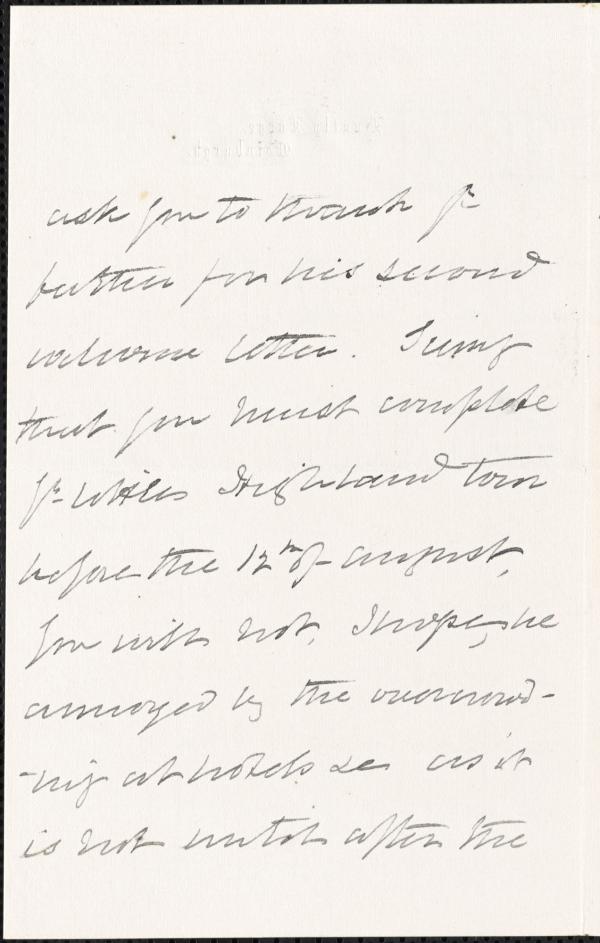 ask you to thank yr
brother for his second
welcome letter. Seeing
that you must complete
yr little Highland tour
before the 12th of August,
you will not, I hope, be
annoyed by the overcrowd-
-ing at hotels &c as it
is not until after the